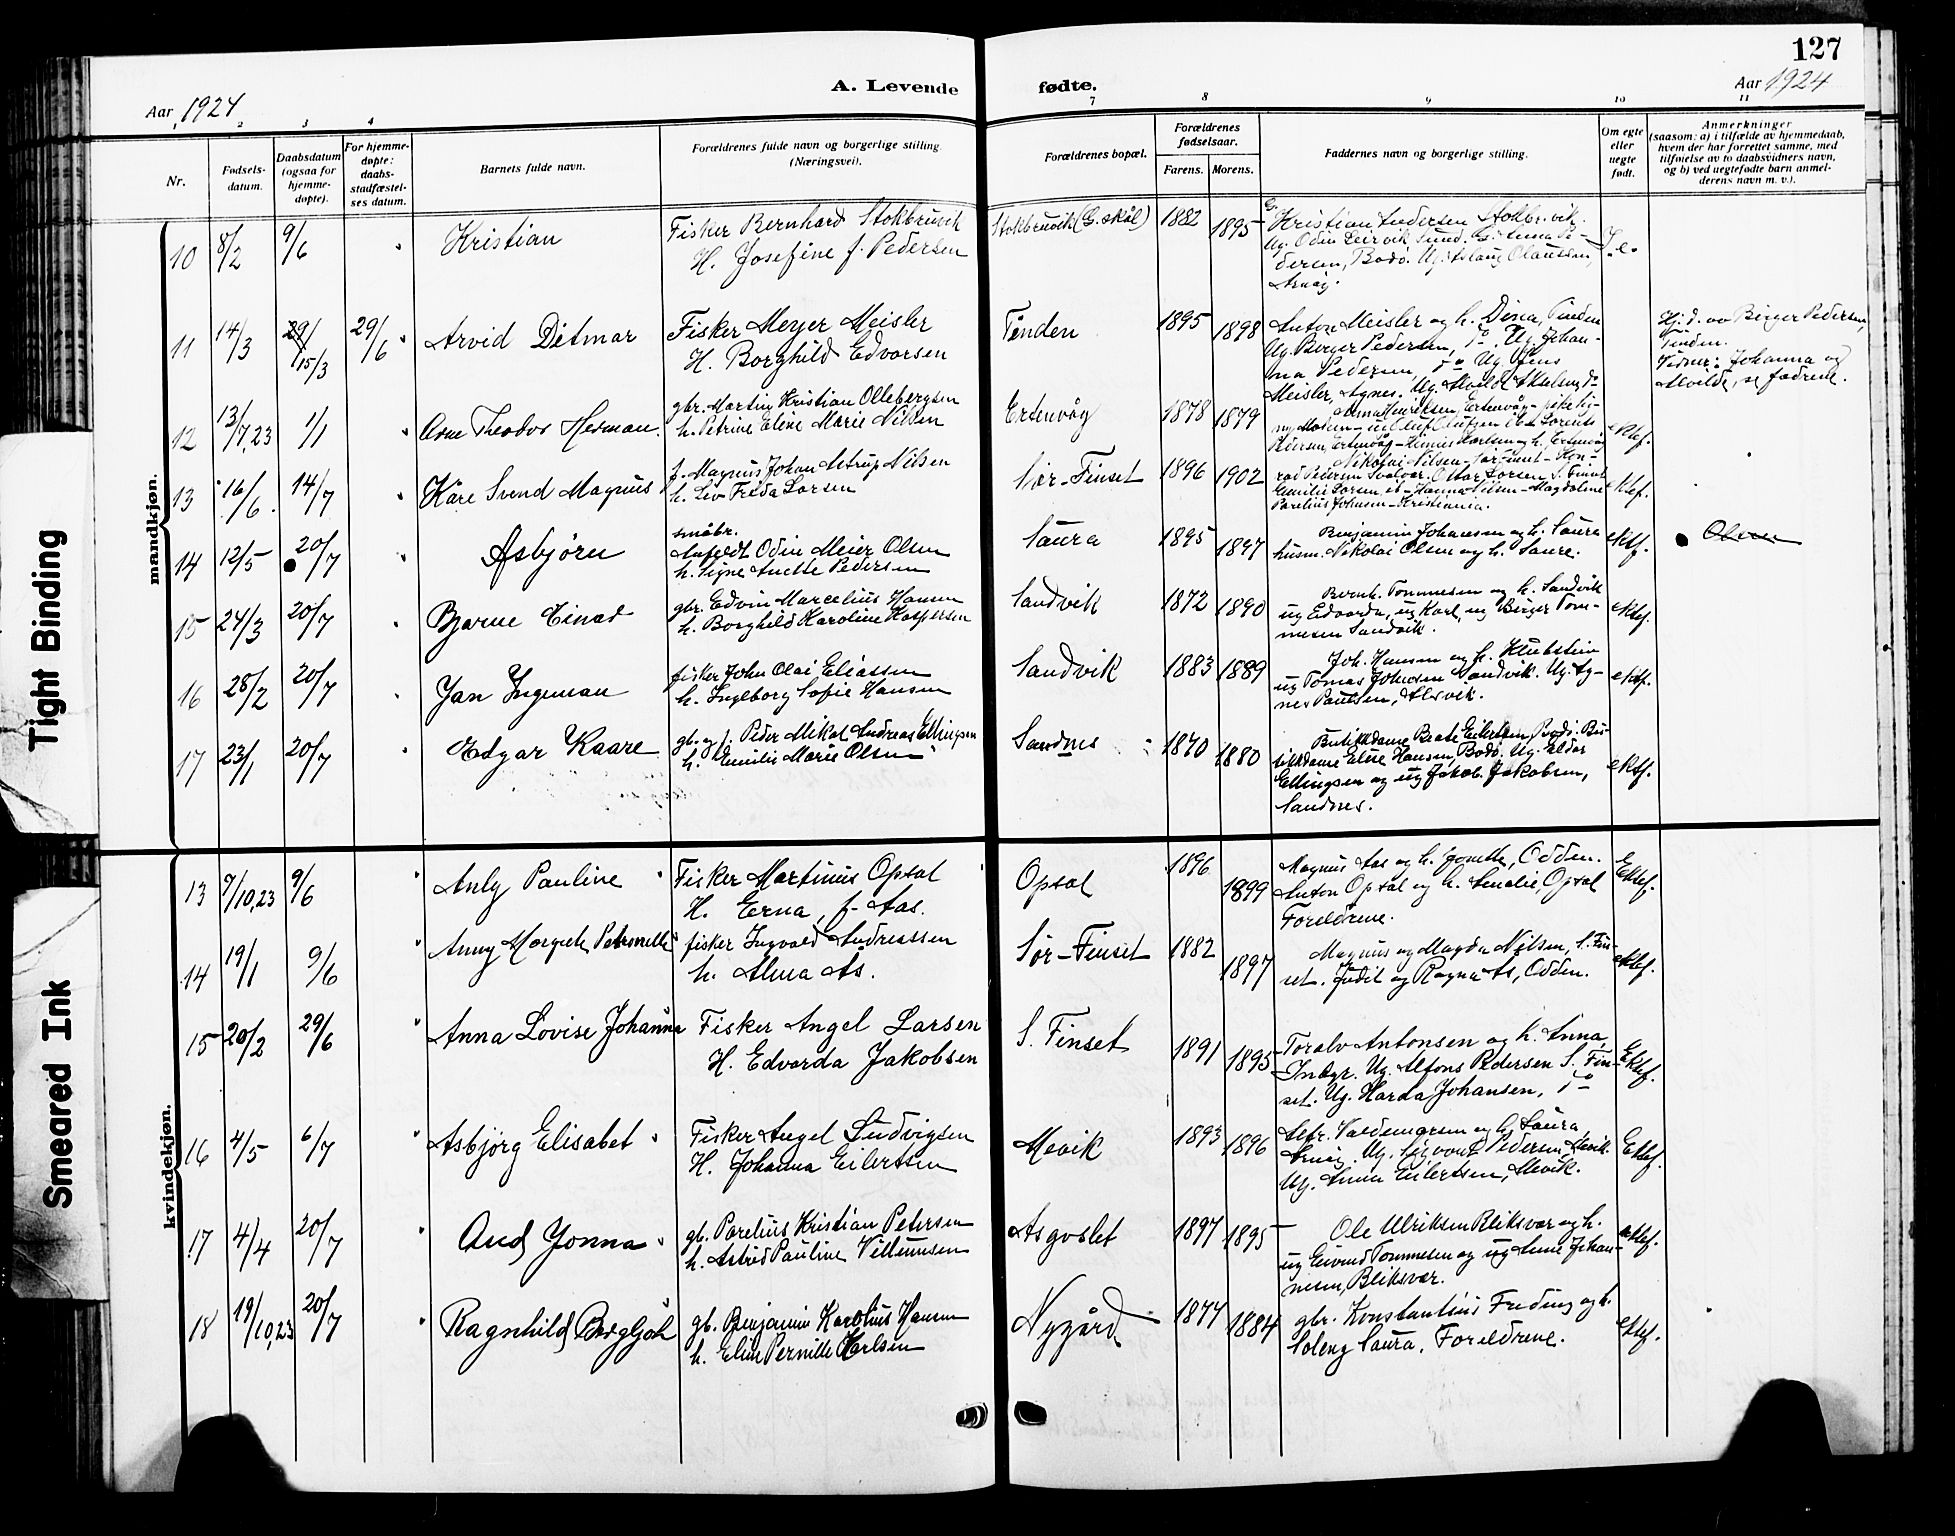 127
A. Levende fødte.
Aar 1924
Aar 1924
1 2 3 4 7 8 9 10 11
Nr.
Fødsels-
datum.
Daabsdatum
(ogsaa for
hjemme-
døpte).
For hjemme-
døpte:
daabs-
stadfæstel-
ses datum.
Barnets fulde navn.
Forældrenes fulde navn og borgerlige stilling.
(Næringsvei).
Forældrenes bopæl.
Forældrenes
fødselsaar.
Farens. Morens.
Faddernes navn og borgerlige stilling.
Om egte
eller
uegte
født.
Anmerkninger
(saasom: a) i tilfælde av hjemmedaab,
hvem der har forrettet samme, med
tilføielse av to daabsvidners navn,
og b) ved uegtefødte barn anmel-
derens navn m. v.).
mandkjøn.
10 8/2 9/6 Kristian
Fisker Bernhard Stokbruvik
H. Josefine f. Pedersen
Stokbruvik (G.skål) 1882 1895
Kristian Andersen Stokbruvik.
Ug. Odin Leirvik Sund. G. Anna Pe-
dersen, Bodø. Ug. Aslaug Olaussen,
Arnøy.
11 14/3 29/ 15/3 29/6 Arvid Ditmar
Fisker Meyer Meisler
H. Borghild Edvarsen
Tinden 1895 1898
Anton Meisler og h. Dina, Tinden
Ug. Birger Pedersen, do. Ug. Johan-
na Pedersen, do Ug. Jens
Meisler, Agnes. Ug. Alvilde Akselsen, do
Hj.d. av Birger Pedersen,
Tinden.
Vidner: Johanna og
Alvilde, se fadrene.
12 13/7,23 1/1 Arne Theodor Herman
gbr. Martin Kristian Ollebergsen
h. Petrine Eline Marie Nilsen
Ertenvåg 1878 1879
Anna Henriksen, Ertenvåg
ektef.
13 16/6 14/7 Kåre Svend Magnus
f. Magnus Johan Astrup Nilsen
h. Lev Frida Larsen
Sør-Finset 1896 1902
Nikolai Nilsen
rad Pedersen Svolvær. Ottar Larsen S. Finset
Emilie Larsen, Hanna Nilsen - Magdalene
Parelius Johnsen - Kristiania.
ektef.
14 12/5 20/7 Asbjørn
småbr.
Anfeldt Odin Meier Olsen
h. Signe Anette Pedersen
Saura 1895 1897
Benjamin Johansen og h. Saura
husm. Nikolai Olsen og h. Saura.
ektf.
Olsen
15 24/3 20/7 Bjarne Einar
gbr. Edvin Marcelius Hansen
h. Borghild Karoline Kaspersen
Sandvik 1872 1890
Bernh. Tommesen og h. Sandvik
ug Edvarda, ug Karl, ug Birger Tom-
mesen Sandvik.
ektef.
16 28/2 20/7 Jan Ingeman
fisker John Olai Eliassen
h. Ingeborg Sofie Hansen
Sandvik 1883 1889
Joh. Hansen og h. Klubstein
ug Tomas Johnsen Sandvik. Ug. Ag-
nes Paulsen, Alsvik.
ektf.
17 23/1 20/7 Edgar Kaare
gb. og f. Peder Mikal Andreas Ellingsen
h. Emilie Marie Olsen
Sandnes 1870 1880
Butikkdame Beate Eilertsen, Bodø. Bu-
tikkdame Eline Hansen, Bodø. Ug. Eldor
Ellingsen og ug Jakob Jakobsen,
Sandnes.
ektf.
kvindekjøn.
13 7/10,23 9/6 Anly Pauline
Fisker Martinus Opsal
H. Erna, f. Aas.
Opsal 1896 1899
Magnus Aas og h. Jonette, Odden.
Anton Opsal og h. Amalie, Opsal
Foreldrene.
Ektef.
14 19/1 9/6 Anny Margrete Petronelle
fisker Ingvald Andreassen
h. Alma As.
Sør-Finset 1882 1897
Magnus og Magda Nilsen, S. Fin-
set. Judit og Ragna As, Odden.
ektef.
15 20/2 29/6 Anna Lovise Johanna
Fisker Angel Larsen
H. Edvarda Jakobsen
S. Finset 1891 1895
Toralv Antonsen og h. Anna,
Indyr. Ug. Alfons Pedersen S. Fin-
set. Ug. Harda Johansen, do
Ektef.
16 4/5 6/7 Asbjørg Elisabet
Fisker Angel Ludvigsen
H. Johanna Eilertsen
Mevik 1893 1896
Alfr. Valdemarsen og h. Saura,
Arnøy. Ug. Sigvart Pedersen, Mevik
Ug. Anna Eilertsen, Mevik.
Ektef.
17 4/4 20/7 Aud Jonna
gb. Parelius Kristian Petersen
h. Astrid Pauline Villumsen
Asgoslet 1897 1895
Ole Ulriksen Bliksvær og h.
ug Eivind Tommesen og ug Anne Johan-
nesen, Bliksvær.
ektef.
18 19/10,23 20/7 Ragnhild Bergljot
gb. Benjamin Karolius Hansen
h. Eline Pernille Karlsen
Nygård 1877 1884
gbr. Konstantius Freding og h.
Soleng Saura. Foreldrene.
ektef.
Tight Binding
Smeared Ink